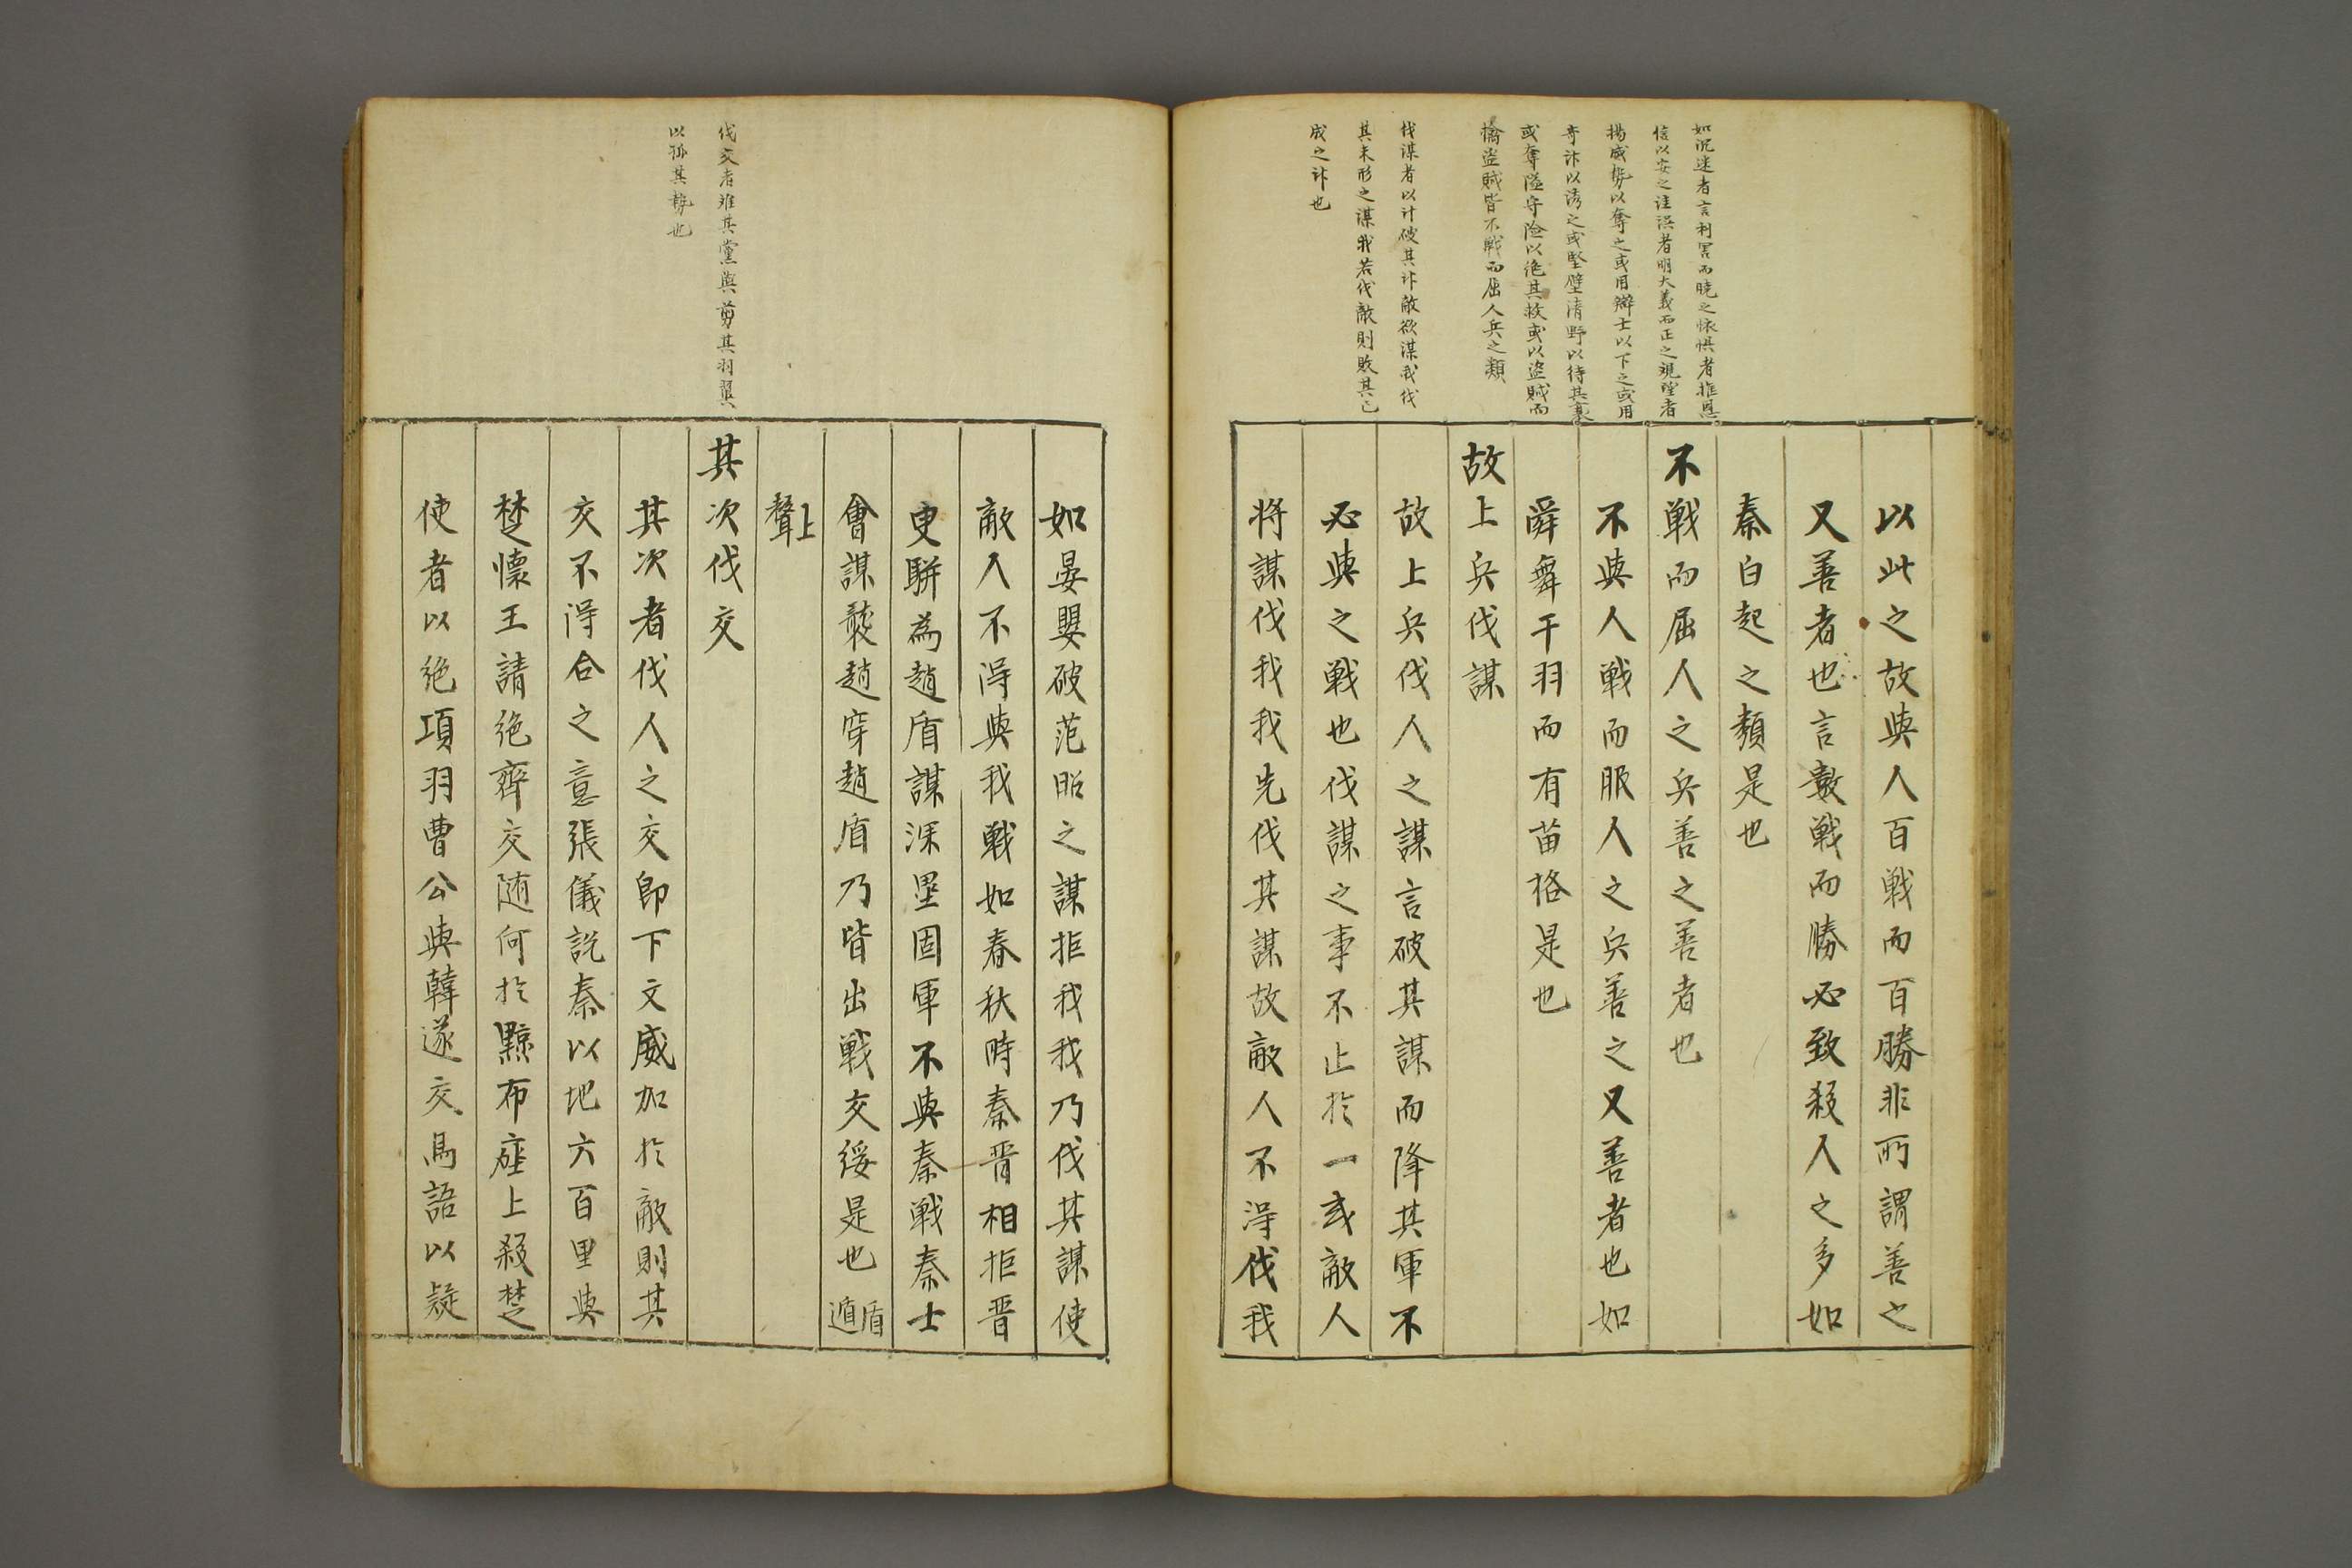 如沉迷者言利害而曉之怵惧者推恩
信以安之詿誤者明大義而正之観望者
揚威勢以奪之或用辯士以下之或用
奇詐以誘之或堅壁清野以待其衰
或奪隘守險以絶其救或以盗賊而
擒盗賊皆不戦而屈人兵之類
伐謀者以计破其詐敵欲謀我伐
其未形之謀我若伐敵則敗其已
成之詐也
以此之故與人百戦而百勝非所謂善之
又善者也言數戦而勝必致殺人之多如
秦白起之類是也
不戦而屈人之兵善之善者也
不與人戦而服人之兵善之又善者也如
舜舞干羽而有苗格是也
故上兵伐謀
故上兵伐人之謀言破其謀而降其軍不
必與之戦也伐謀之事不止於一或敵人
将謀伐我我先伐其謀故敵人不得伐我
伐交者难其黨與剪其羽翼
以孤其勢也
如晏嬰破范昭之謀拒我我乃伐其謀使
敵人不得與我戦如春秋時秦晋相拒晋
臾駢為趙盾謀深壘固軍不與秦戦秦士
會謀襲趙穿趙盾乃皆出戦交綏是也 盾遁
上聲
其次伐交
其次者伐人之交即下文威加於敵則其
交不得合之意張儀説秦以地六百里與
楚懐王請絶齊交随何於黥布座上殺楚
使者以絶項羽曹公與韓遂交馬語以疑